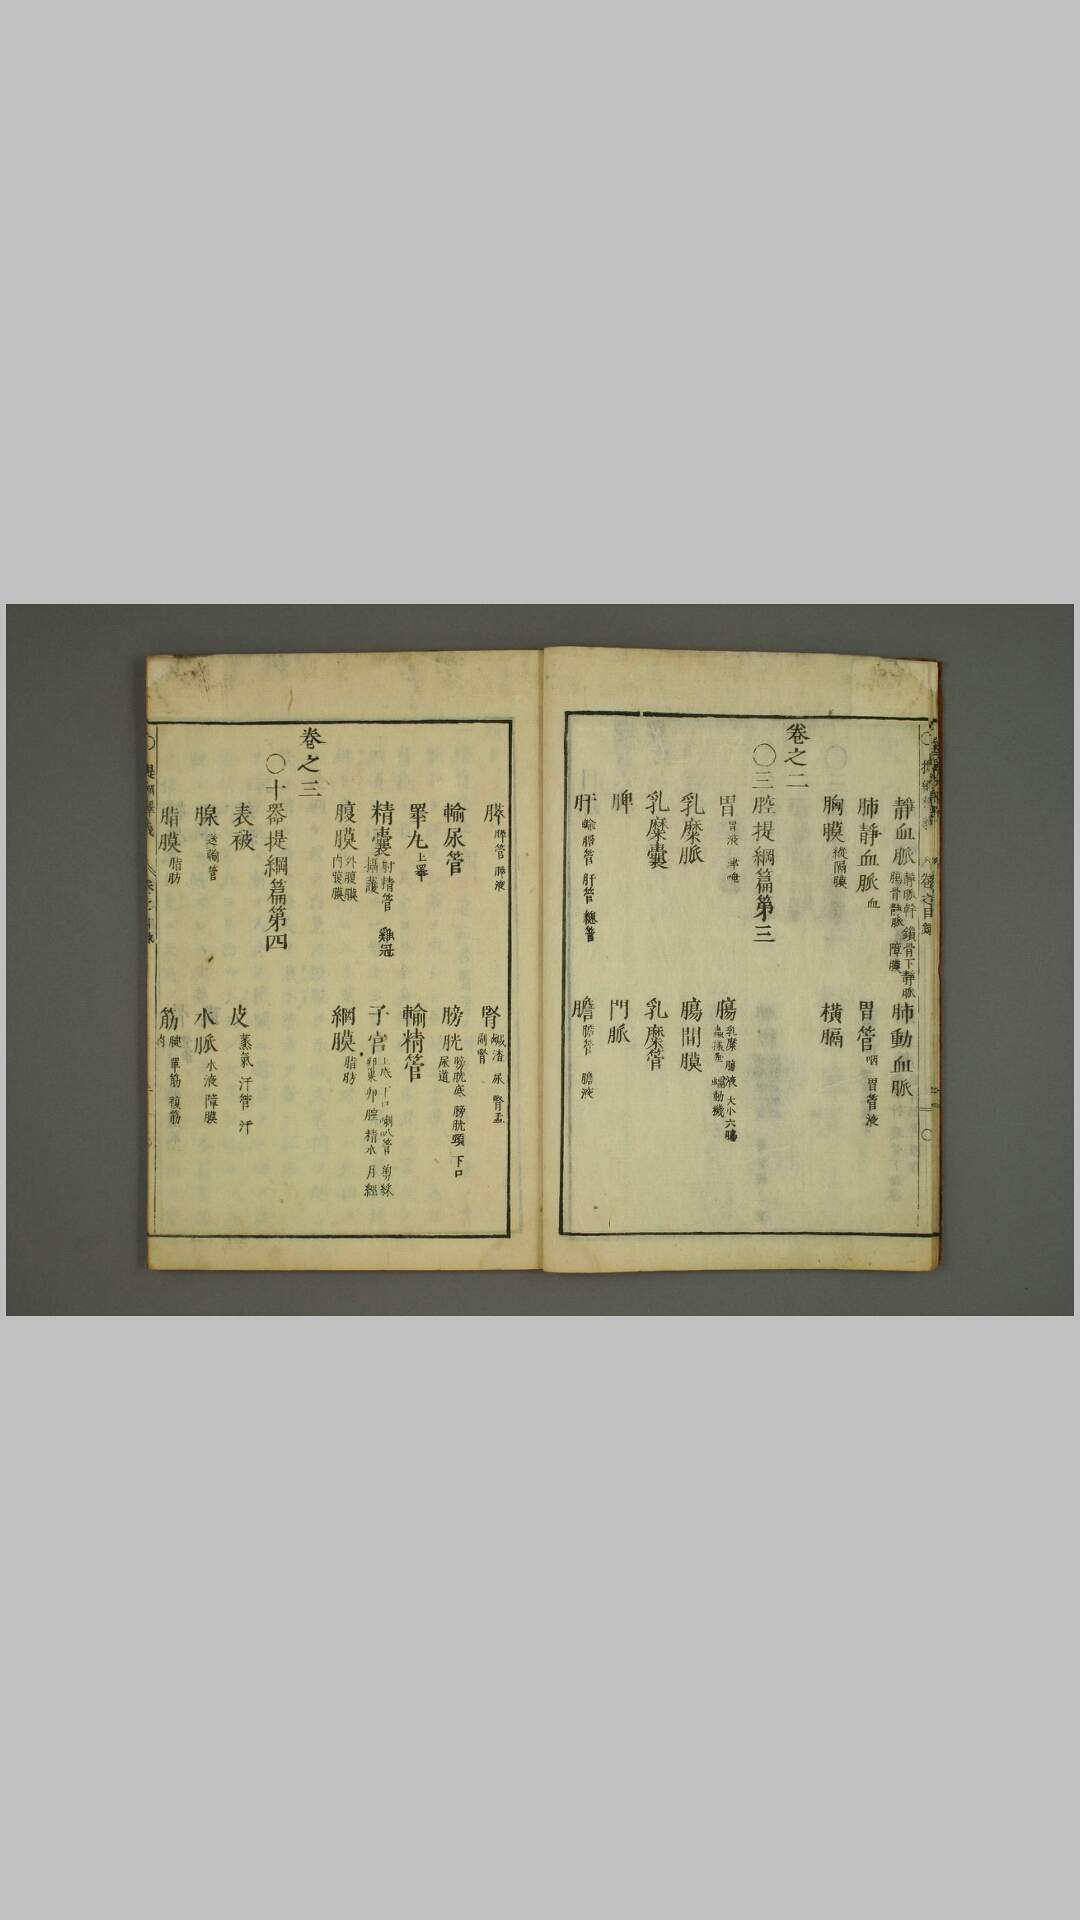 靜血脈 靜脈幹 鎖骨下靜脈 腸骨靜脈 障膜
肺動血脈
肺靜血脈 血
胃管 咽 胃管液
胸膜 縱隔膜
橫膈
卷之二
〇三腔提綱篇第三
胃 胃液
腸 乳糜 腸液 大小六腸 蠕動機
乳糜脈
腸間膜
乳糜囊
乳糜管
脾
門脈
肝 輸膽管 肝管 總管
膽 膽管 膽液
膵 膵管 膵液
腎 鹹渣 尿 腎盂 副腎
輸尿管
膀胱 膀胱底 膀胱頸 下口 尿道
睪丸 上睪
輸精管
精囊 射精管 雞冠 攝護
子宮 上底 下口 喇叭管 剪綵 卵巢 卵 膣 精水 月經
腹膜 外腹膜 内腹膜
網膜 脂肪
卷之三
〇十器提綱篇第四
表被
皮 蒸氣 汗管 汗
腺 送輸管
水脈 水液 障膜
脂膜 脂肪
筋 腱 單筋 複筋 肉